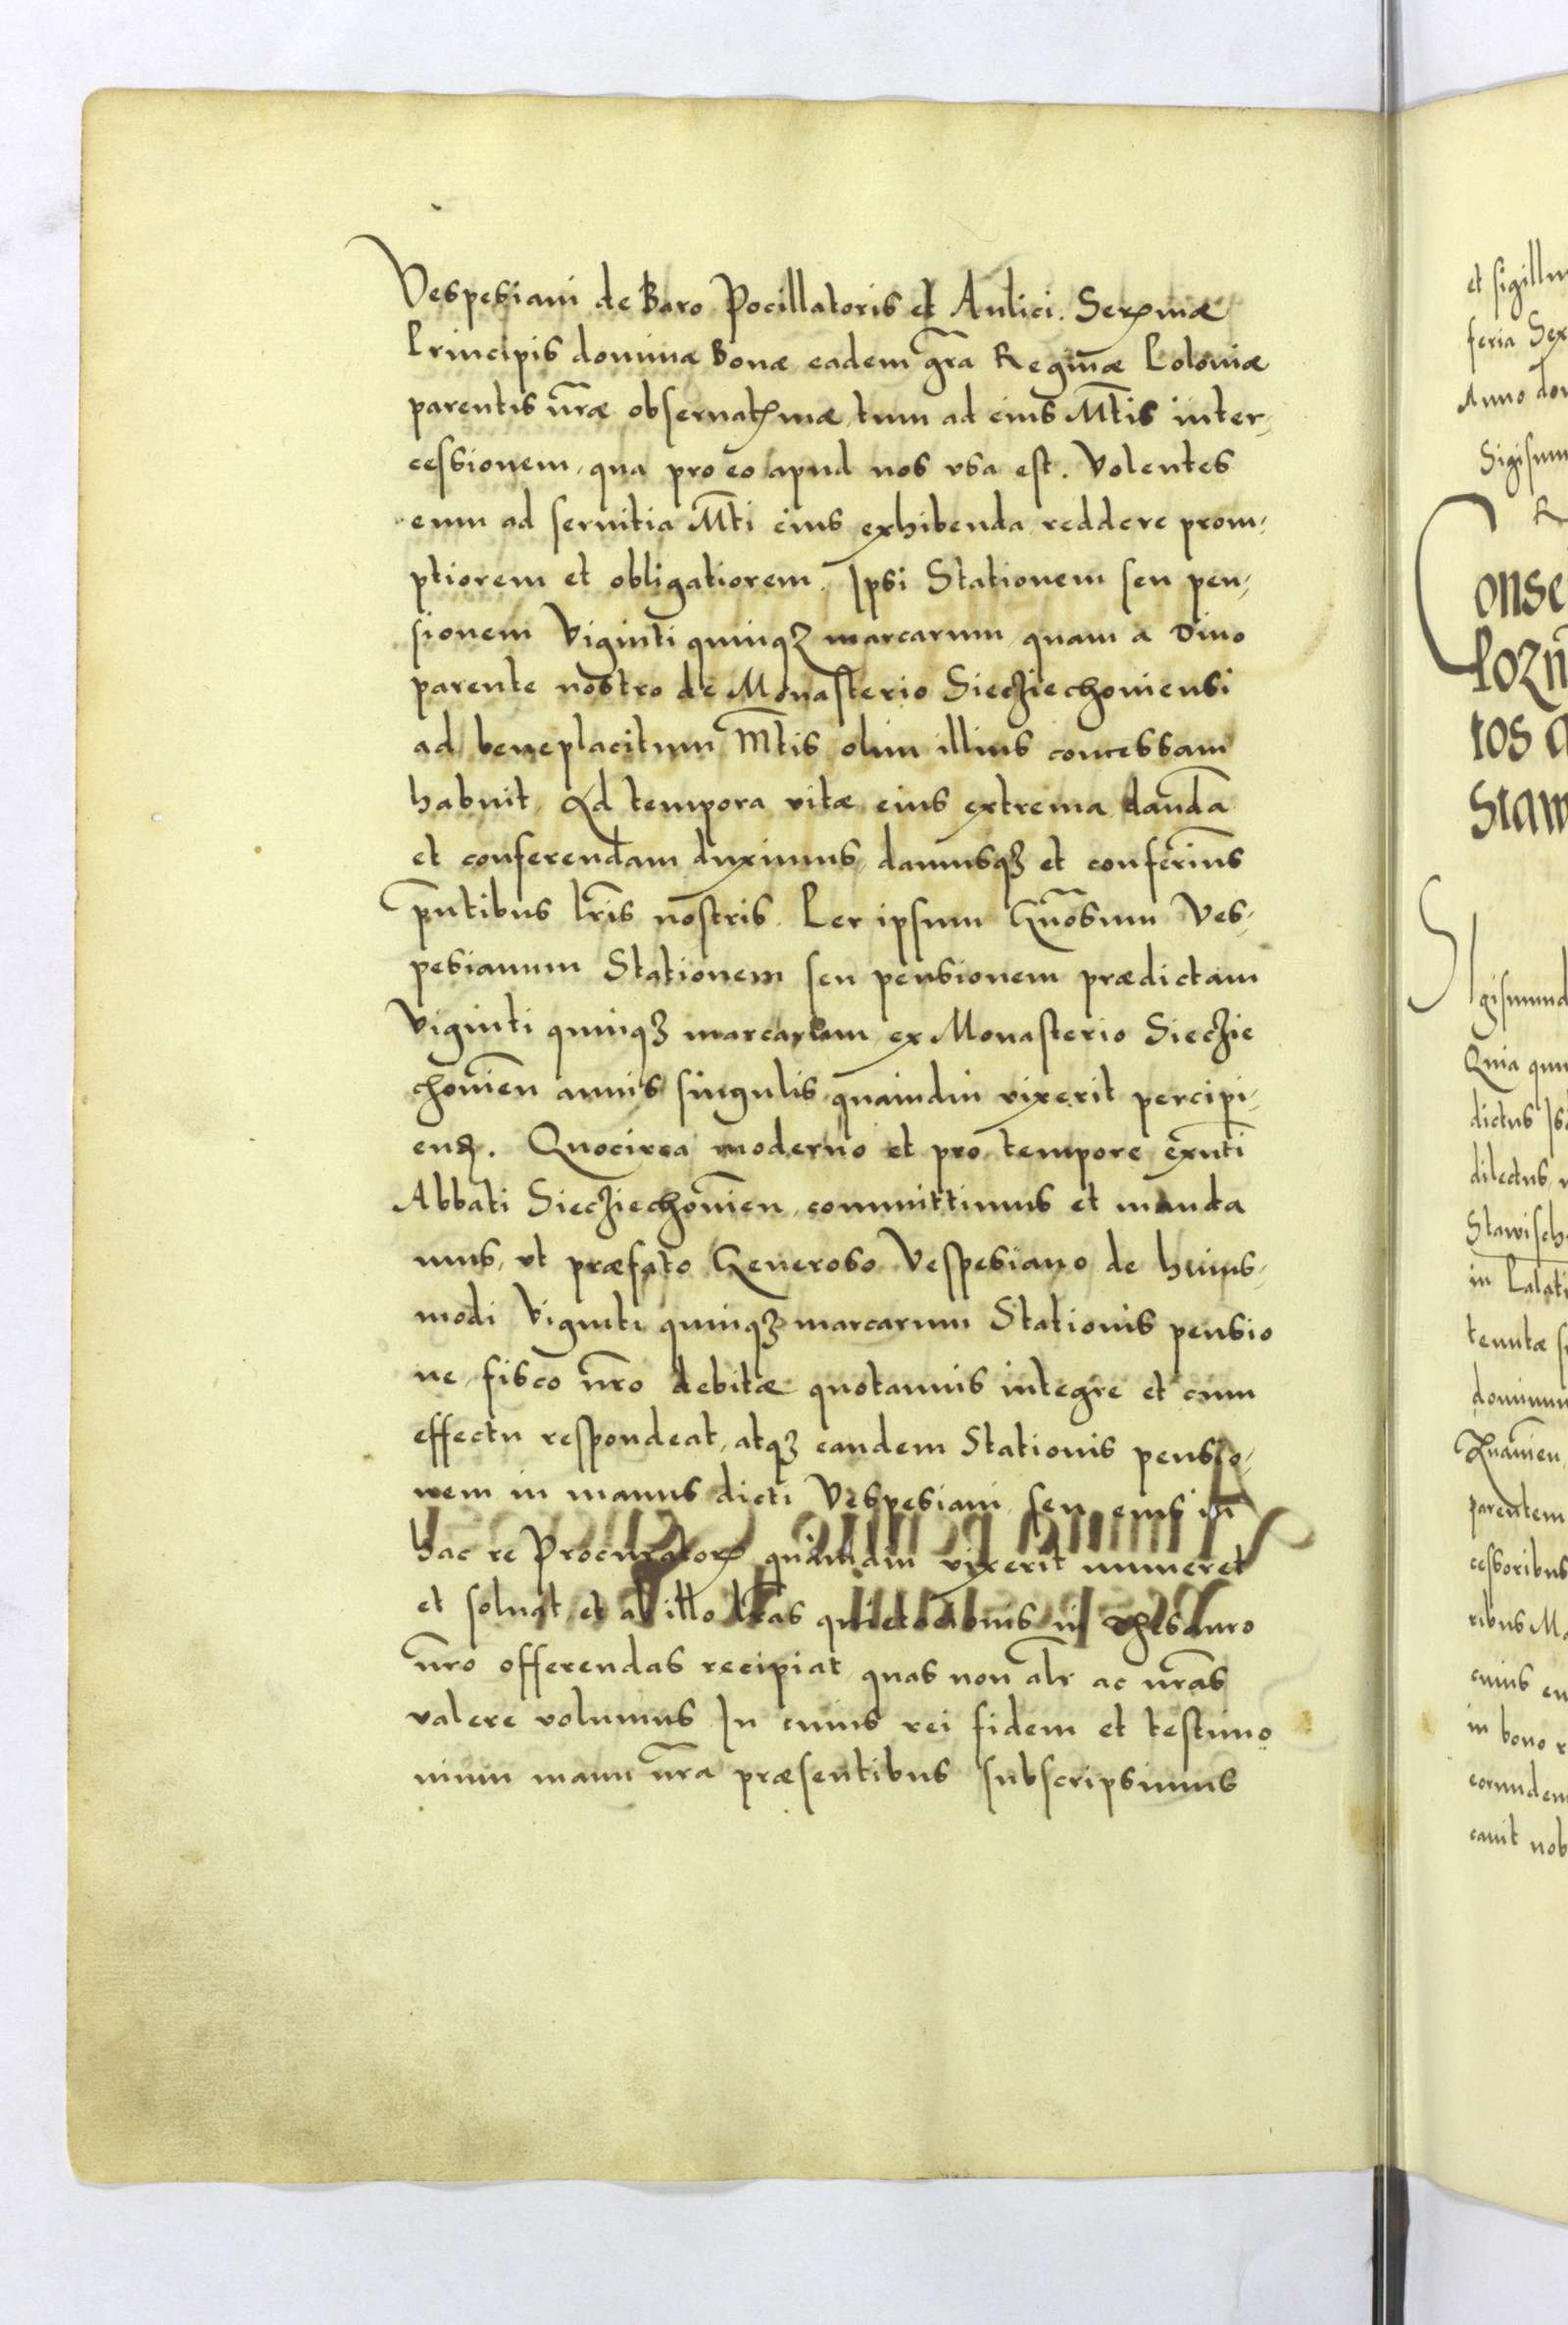 Vespesiani de Baro Pocillatoris et Aulici. Serꝫmæ
Principis dominæ Bonæ eadem gr̄a Reginæ Poloniæ
parentis nr̄æ obseruatꝫmæ, tum ad eius Mt̄is inter-
cessionem, qua pro eo apud nos vsa est. Volentes
eum ad seruitia Mt̄i eius exhibenda reddere prom-
ptiorem et obligatiorem. Ipsi Stationem seu pen-
sionem Viginti quinqꝫ marcarum, quam a Diuo
parente nostro de Monasterio Siecziechouiensi
ad beneplacitum Mt̄is olim illius concessam
habuit, Ad tempora vitæ eius extrema dandā
et conferendam duximus, damusqꝫ et conferim̄us
pn̄tibus lr̄is nostris. Per ipsum Gn̄osum Ves-
pesianum Stationem seu pensionem prædictam
Viginti quinqꝫ marcarum ex Monasterio Sieczie
chouien̄ annis singulis quamdiu vixerit percipi-
end. Quocirca moderno et pro tempore exn̄ti
Abbati Siecziechouien̄, committimus et manda
mus, vt præfato Generoso Vespesiano de huius-
modi Viginti quinqꝫ marcarum Stationis pensio
ne, fisco nr̄o debitæ quotannis integre et cum
effectu respondeat, atqꝫ eandem Stationis pensio-
nem in manus dicti Vespesiani seu eius in
hac re Procuratorꝫ quamdiu vixerit numeret
et soluat, et ab illo lr̄as quietationis in Thesauro
nr̄o offerendas recipiat, quas non alr̄ ac nr̄as
valere volumus. In cuius rei fidem et testimo
nium manu nr̄a præsentibus subscripsimus
et sigillu
feria Sex
Anno do
Sigism
R
Conse
Pozn̄
tos
Staw
Sigismund
Quia
dictus
dilectus
Stawisch
in Palati
tenutæ
dominu
parentem
cessoribus
ribus Ma
cuius
in bono
eorundem
cauit nob